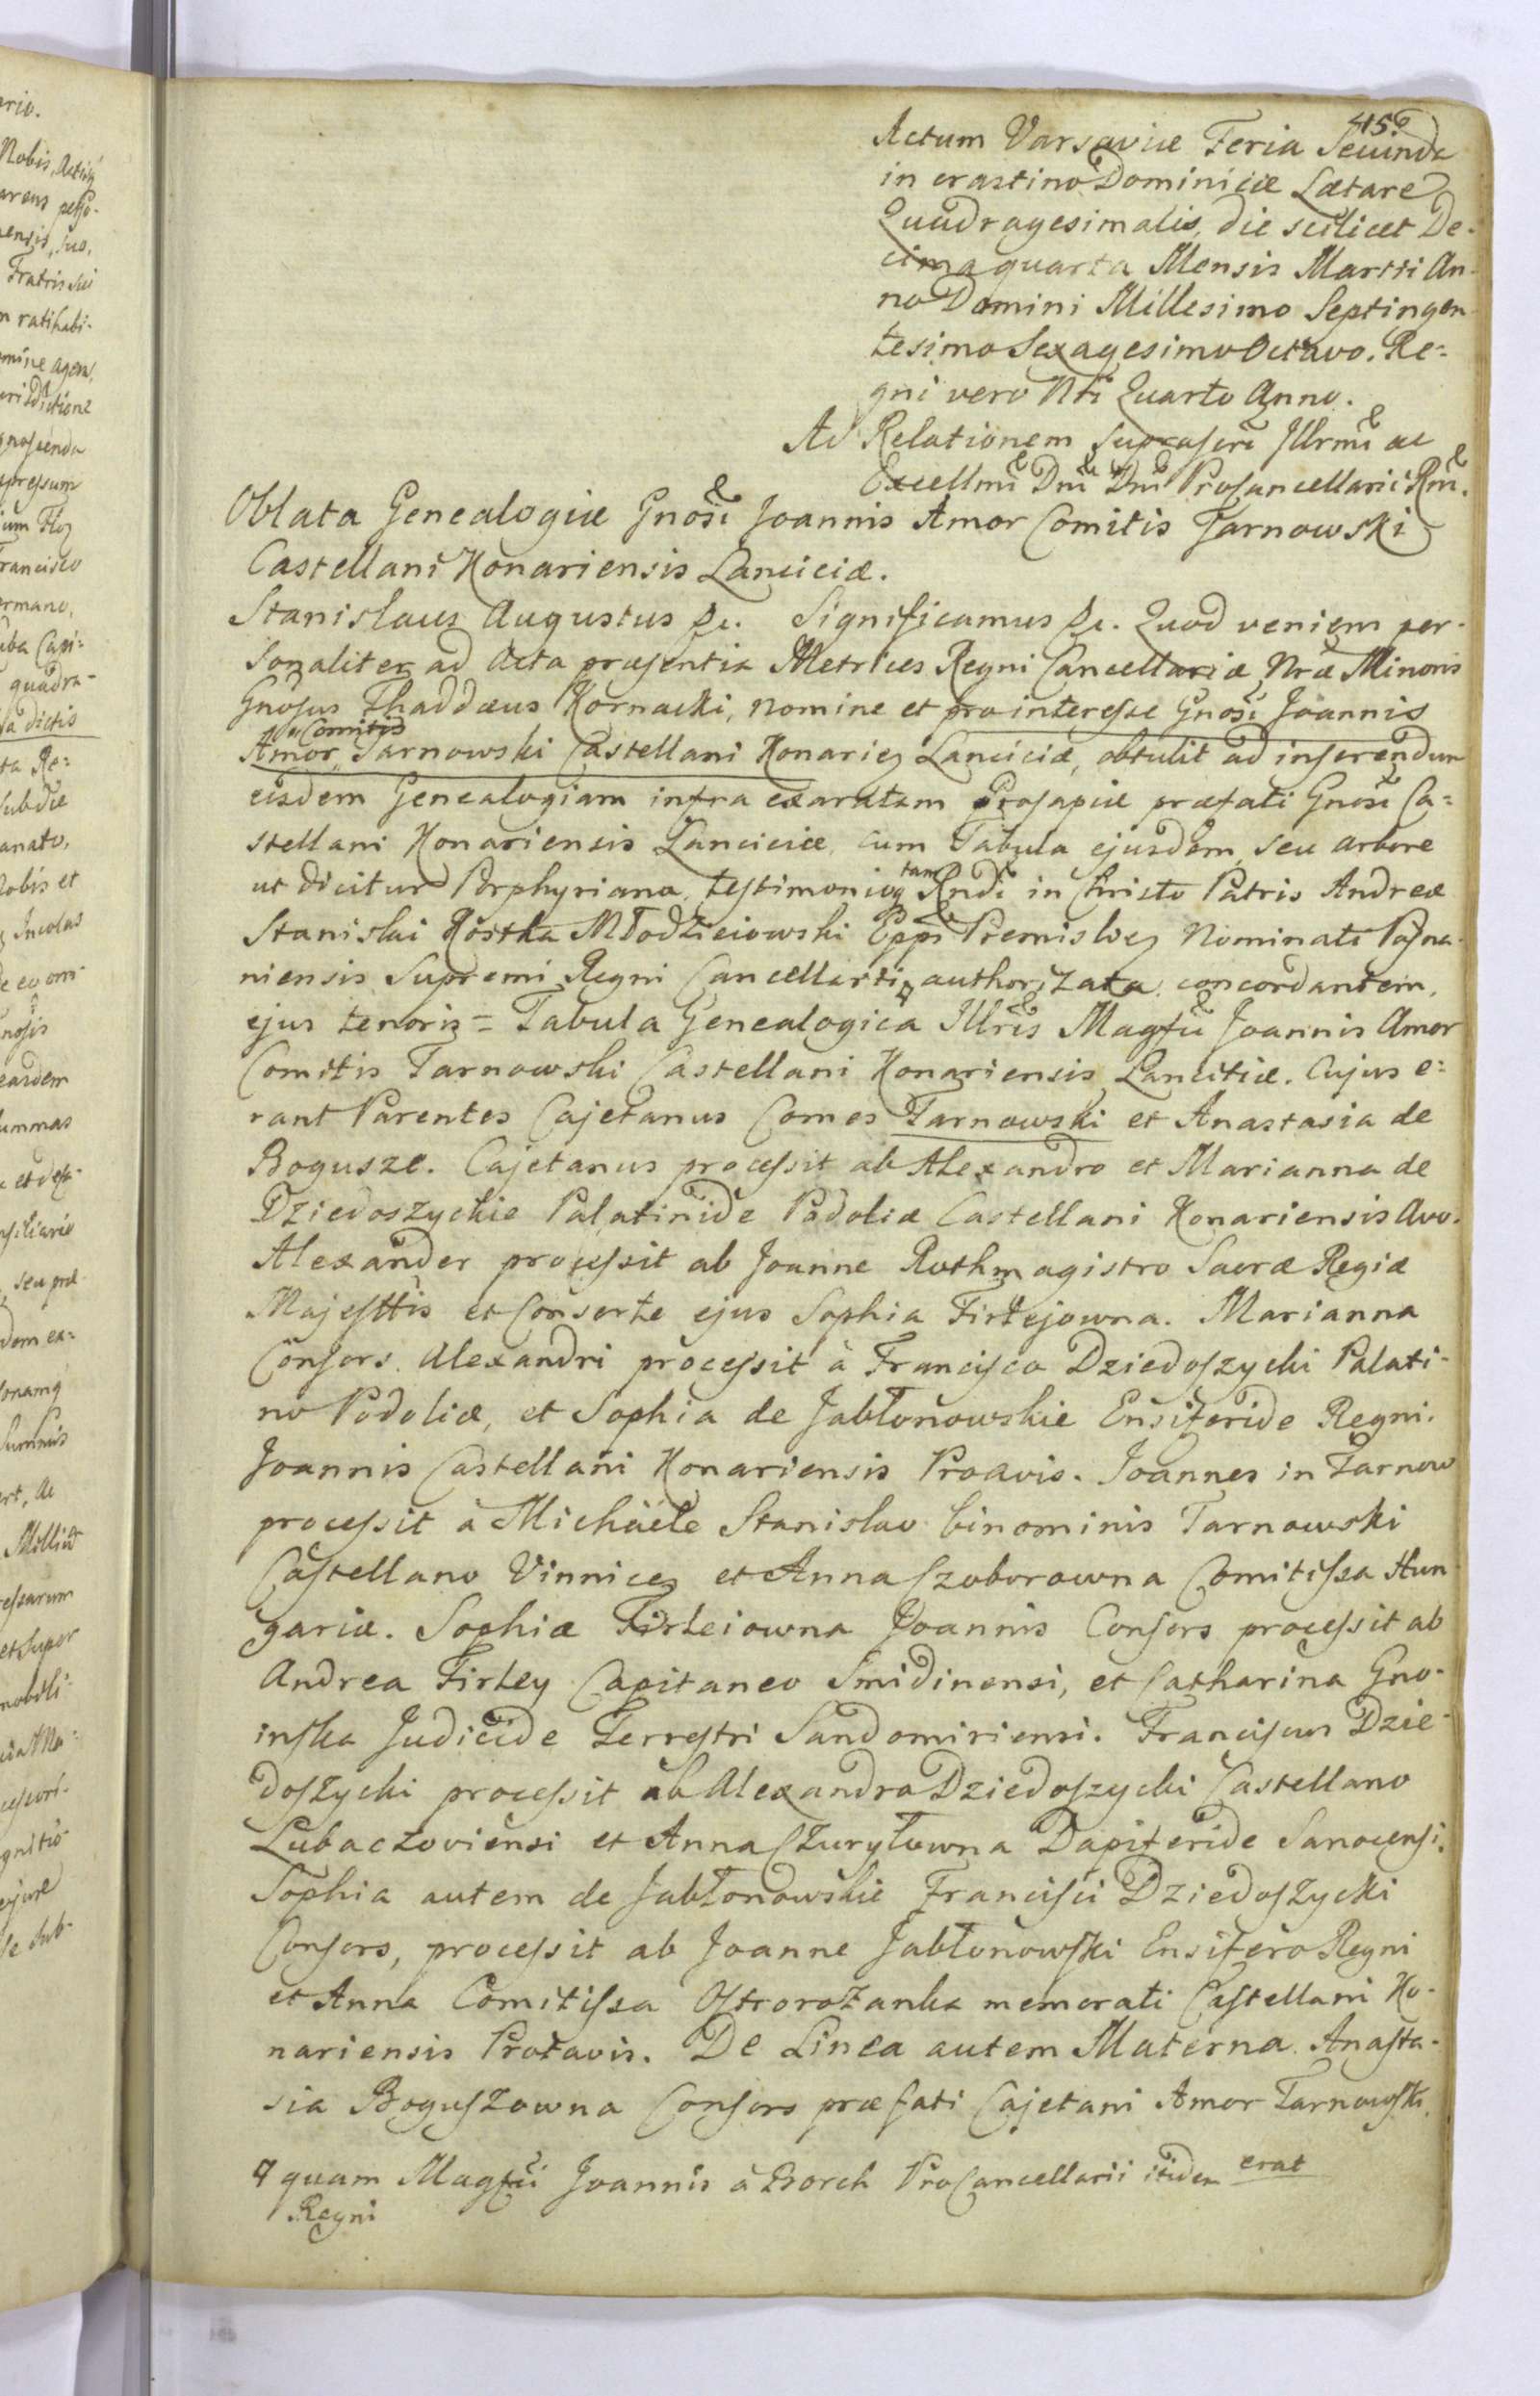 415
Actum Varsaviæ Feria Secunda
in crastino Dominicæ Lætare
Quadragesimalis, die scilicet De-
cima quarta Mensis Martii An-
no Domini Millesimo Septingen-
tesimo Sexagesimo Octavo. Re=
gni vero Nri Quarto Anno.
Ad Relationem suprascri Jllrmi ac
Excellmi Dni Dni Procancellarii Rni.
Oblata Genealogiæ Gnosi Joannis Amor Comitis Tarnowski
Castellani Konariensis Lanciciæ.
Stanislaus Augustus &c. Significamus &c. Quod veniem per-
sonaliter ad Acta præsentia Metrices Regni Cancellariæ Nræ Minoris
Gnosus Thaddæus Kornacki, nomine et pro interesse Gnosi Joannis
Comitis
Amor Tarnowski Castellani Konarien Lanciciæ, obtulit ad inserendum
eisdem Genealogiam infra exaratam Prosapiæ præfati Gnosi Ca=
stellani Konariensis Lanciciæ, cum Tabula ejusdem, seu arbore
tam
ut dicitur Porphyriana, testimonioq Rndi in Christo Patris Andreæ
Stanislai Kostka Młodzieiowski Eppi Premislien Nominati Posna-
niensis Supremi Regni Cancellarii authorizata, concordantem,
ejus tenoris = Tabula Genealogica Jllris Magfci Joannis Amor
Comitis Tarnowski Castellani Konariensis Lancitiæ. Cujus e=
rant Parentes Cajetanus Comes Tarnowski et Anastasia de
Bogusze. Cajetanus processit ab Alexandro et Marianna de
Dziedoszyckie Palatinide Podoliæ Castellani Konariensis Avo.
Alexander processit ab Joanne Rothmagistro Sacræ Regiæ
Majesttis et Consorte ejus Sophia Firlejowna. Marianna
Consors Alexandri processit à Francisco Dziedoszycki Palati-
no Podoliæ, et Sophia de Jabłonowskie Ensiferide Regni.
Joannis Castellani Konariensis Proavis. Joannes in Tarnow
processit à Michäele Stanislao binominis Tarnowski
Castellano Vinnicen et Anna Szoborowna Comitissa Hun
gariæ. Sophiæ Firleiowna Joannis Consors processit ab
Andrea Firley Capitaneo Smidinensi, et Catharina Gno-
inska Judicide Terrestri Sandomiriensi. Franciscus Dzie-
doszycki processit ab Alexandro Dziedoszycki Castellano
Lubaczoviensi et Anna Czuryłowna Dapiferide Sanocensi.
Sophia autem de Jabłonowskie Francisci Dziedoszycki
Consors, processit ab Joanne Jabłonowski Ensifero Regni
et Anna Comitissa Ostrorożanka memorati Castellani Ko-
nariensis Protavis. De Linea autem Materna. Anasta-
sia Boguszowna Consors præfati Cajetani Amor Tarnowski,
quam Magfci Joannis à Borch ProCancellarii itidem erat
Regni